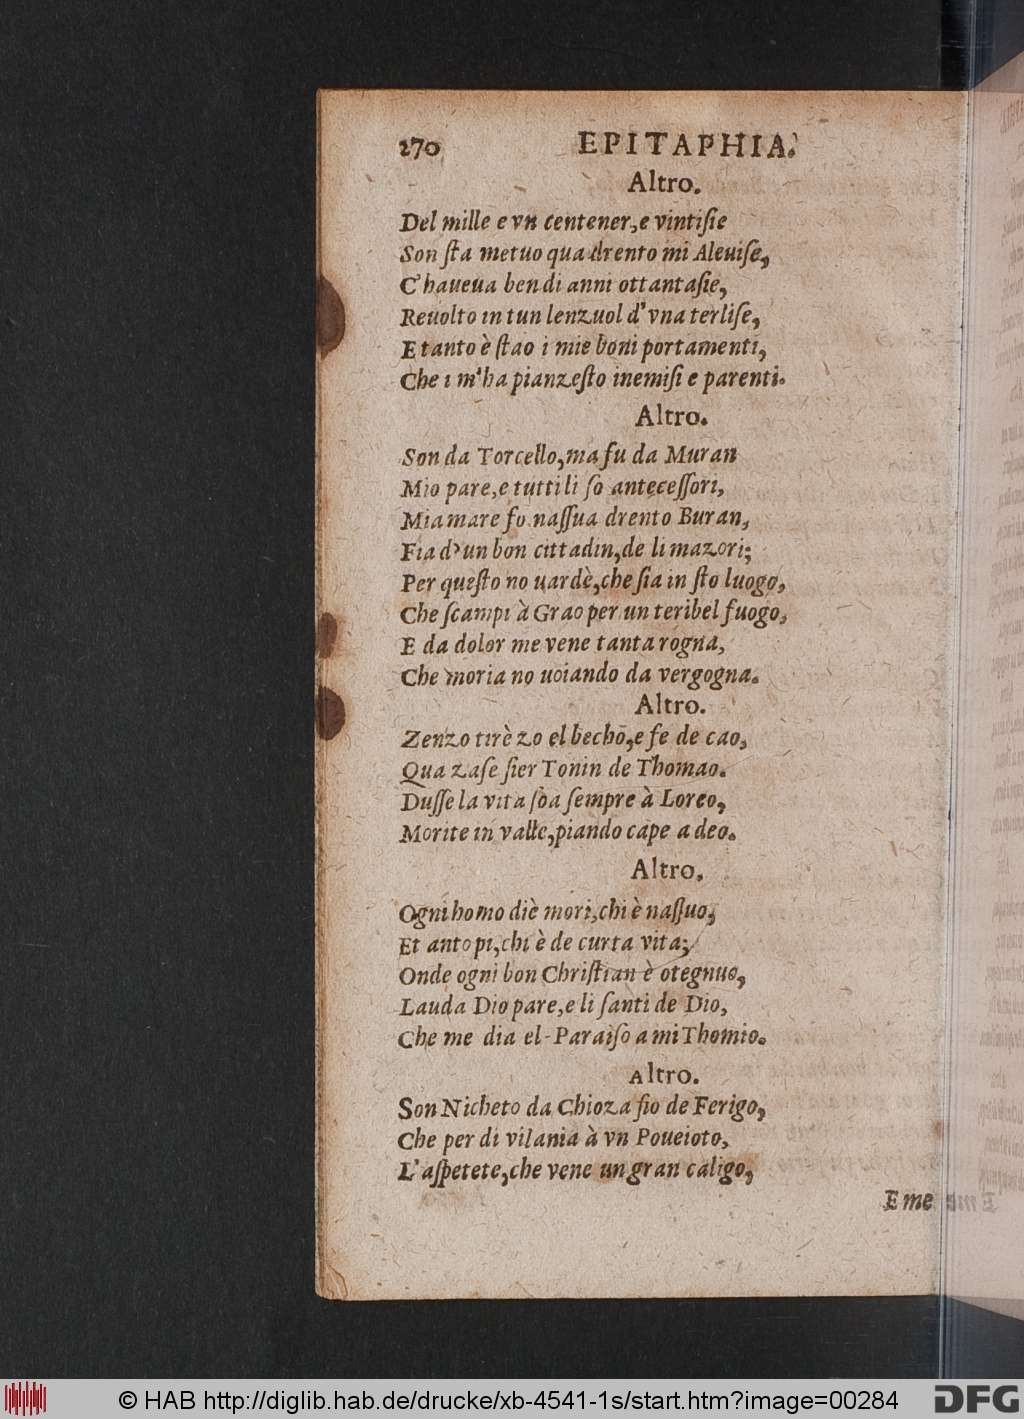 270 EPITAPHIA.
Altro.
Del mille e vn centener, e vintiſie
Son ſta metuo qua drento mi Aleuiſe,
C'haueua ben di anni ottantaſie,
Reuolto in tun lenzuol d'vna terliſe,
E tanto è ſtao i mie boni portamenti,
Che i m'ha pianzeſto inemiſi e parenti.
Altro.
Son da Torcello, ma fu da Muran
Mio pare, e tutti li ſo anteceſſori,
Mia mare fo naſſua drento Buran,
Fia d'un bon cittadin, de li mazori;
Per queſto no uardè, che ſia in ſto luogo,
Che ſcampi à Grao per un teribel fuogo,
E da dolor me vene tanta rogna,
Che moria no uoiando da vergogna.
Altro.
Zenzo tirè zo el becho, e fe de cao,
Qua zaſe ſier Tonin de Thomao.
Duſſe la vita ſoa ſempre à Loreo,
Morite in valle, piando cape a deo.
Altro.
Ogni homo diè mori, chi è naſſuo,
Et anto pi, chi è de curta vita;
Onde ogni bon Chriſtian è otegnuo,
Lauda Dio pare, e li ſanti de Dio,
Che me dia el Paraiſo a mi Thomio.
Altro.
Son Nicheto da Chioza fio de Ferigo,
Che per di vilania à vn Poueioto,
L'aſpetete, che vene un gran caligo,
E me
© HAB http://diglib.hab.de/drucke/xb-4541-1s/start.htm?image=00284
DFG